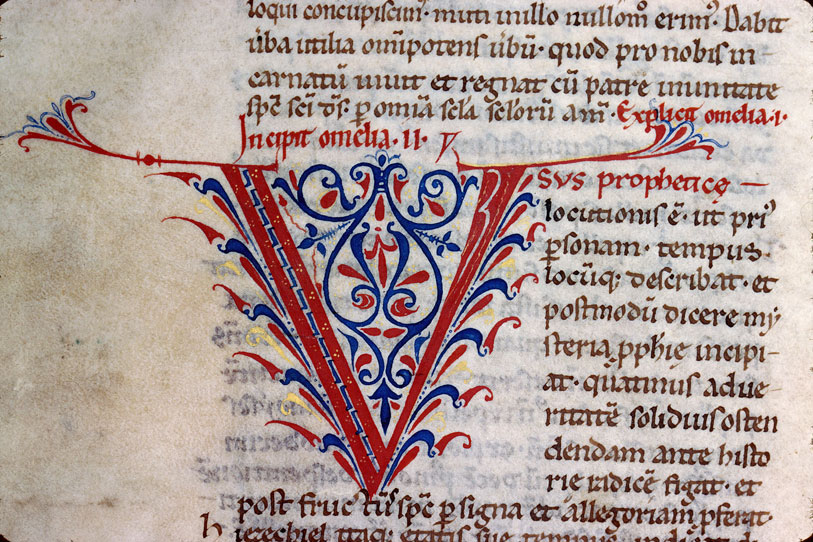 loqui concupiscim᷒· muti in illo nullom̄ erim᷒· Dabit
uba utilia om̄ipotens ūbū· quod pro nobis in
carnatū uiuit et regnat cū patre in unitate
sp̄c sc̄i d̄s· ꝑ om̄ia sc̄la sc̄lorū am̄· Explicit omelia·i·
Incipit omelia·ii·
V
SVS propheticę
locutionis ē· ut pri᷒
ꝑsonam· tempus·
locūq; describat· et
postmodū dicere my
steria ꝓph̄ię incipi
at· quatinus ad ue
ritatē solidius osten
dendam ante histo
rię radicē figat· et
post fructus sp̄c ꝑ signa et allegoriam ꝓferat·
iezechiel itaq; etatis suę tempus